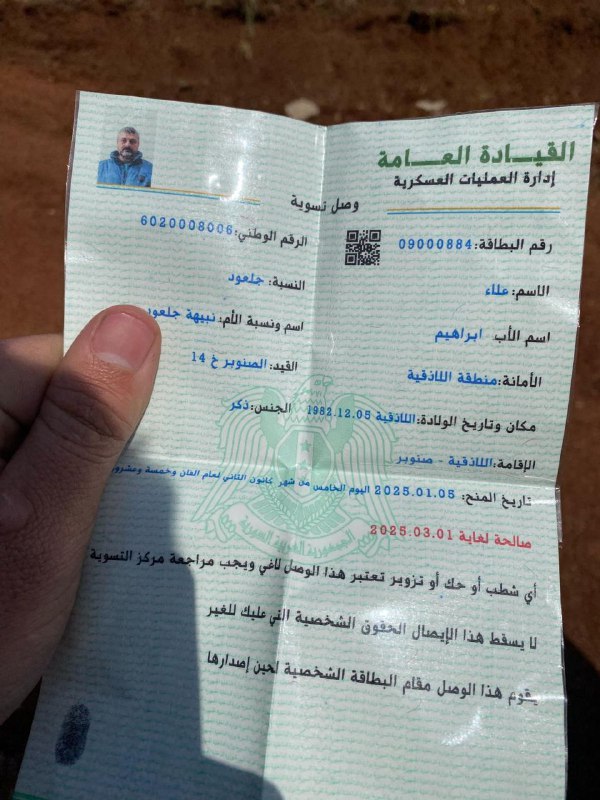 القيـــادة العـــامة
إدارة العمليات العسكرية
وصل تسوية
رقم البطاقة: 09000884
الرقم الوطني: 6020008006
الاسم: علاء
النسبة: جلعود
اسم الأب ابراهيم
اسم ونسبة الأم: نبيهة جلعود
الأمانة: منطقة اللاذقية
القيد: الصنوبر خ 14
مكان وتاريخ الولادة: اللاذقية 1982.12.05
الجنس: ذكر
الإقامة: اللاذقية - صنوبر
تاريخ المنح: 2025.01.05 اليوم الخامس من شهر كانون الثاني لعام الفان وخمسة وعشرون
صالحة لغاية 2025.03.01
أي شطب أو حك أو تزوير تعتبر هذا الوصل لاغي ويجب مراجعة مركز التسوية
لا يسقط هذا الإيصال الحقوق الشخصية التي عليك للغير
يقوم هذا الوصل مقام البطاقة الشخصية لحين إصدارها
الجمهورية العربية السورية